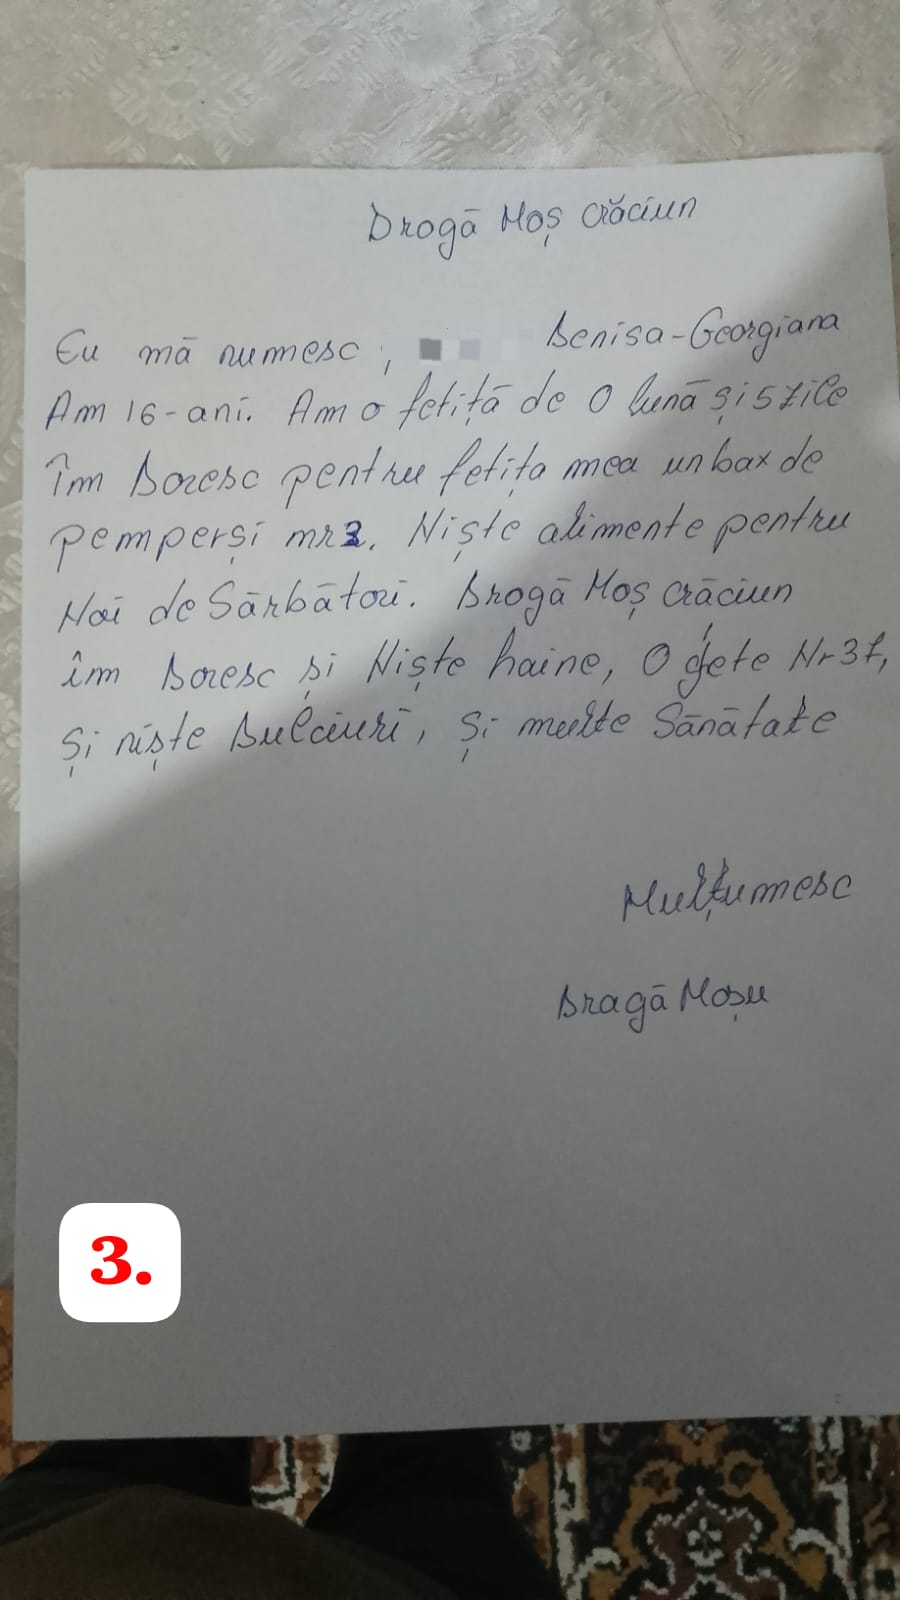 Drogă Moș Crăciun
Eu mă numesc, Denisa-Georgiana
Am 16-ani. Am o fetiță de o lună și 5 zile
Îm Doresc pentru fetița mea un bax de
pemperși mr3. Niște alimente pentru
Noi de Sărbători. Drogă Moș Crăciun
îm Doresc și Niște haine, O gete Nr 37,
Și niște Dulciuri, Și multe Sănătate
Mulțumesc
Dragă Moșu
3.